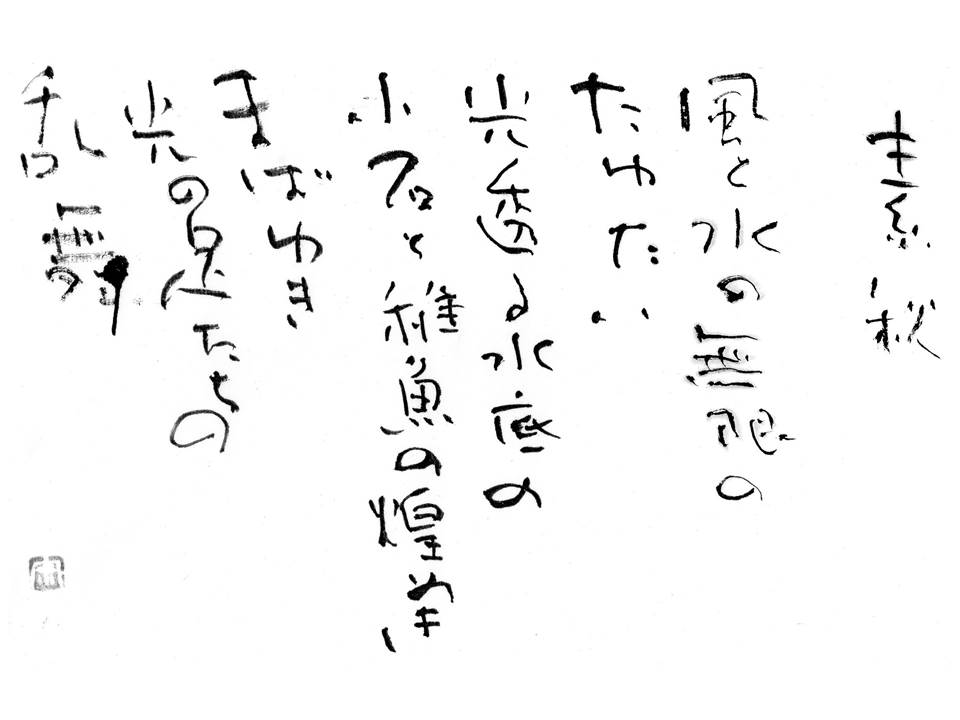 素秋
風と水の無限の
たゆたい
光透る水底の
小石と稚魚の煌めき
まばゆき
光の足たちの
乱舞